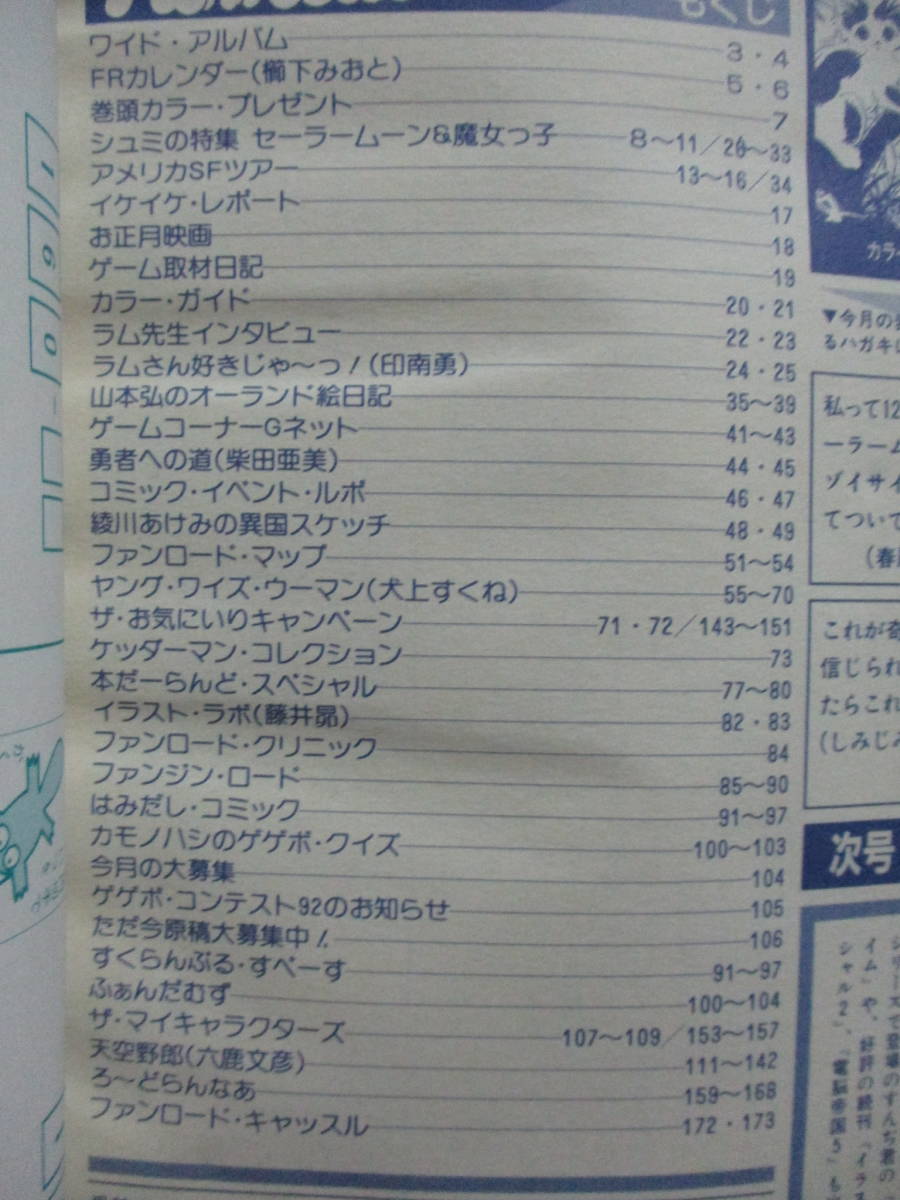 もくじ
ワイド・アルバム 3・4
FRカレンダー(櫛下みおと) 5・6
巻頭カラー・プレゼント 7
シュミの特集 セーラームーン&魔女っ子 8〜11/26〜33
アメリカSFツアー 13〜16/34
イケイケ・レポート 17
お正月映画 18
ゲーム取材日記 19
カラー・ガイド 20・21
ラム先生インタビュー 22・23
ラムさん好きじゃ〜っ!(印南勇) 24・25
山本弘のオーランド絵日記 35〜39
ゲームコーナーGネット 41〜43
勇者への道(柴田亜美) 44・45
コミック・イベント・ルポ 46・47
綾川あけみの異国スケッチ 48・49
ファンロード・マップ 51〜54
ヤング・ワイズ・ウーマン(犬上すくね) 55〜70
ザ・お気にいりキャンペーン 71・72/143〜151
ケッダーマン・コレクション 73
本だーらんど・スペシャル 77〜80
イラスト・ラボ(藤井昴) 82・83
ファンロード・クリニック 84
ファンジン・ロード 85〜90
はみだし・コミック 91〜97
カモノハシのゲゲボ・クイズ 100〜103
今月の大募集 104
ゲゲボ・コンテスト92のお知らせ 105
ただ今原稿大募集中! 106
すくらんぶる・すぺーす 91〜97
ふぁんだむず 100〜104
ザ・マイキャラクターズ 107〜109/153〜157
天空野郎(六鹿文彦) 111〜142
ろ〜どらんなあ 159〜168
ファンロード・キャッスル 172・173
カラー
▼今月の
るハガキ
私って12
ーラーム
ゾイサイ
てついて
(春
これが
信じられ
たらこれ
(しみじみ
次号
シリーズで登場のすんぢ君の
イム」や、好評の続刊「イラ
シャル2」、「電脳帝国5」も
160-